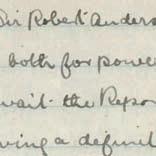 Sir Robert Anders
both for powe
wait the Repo
ving a defini